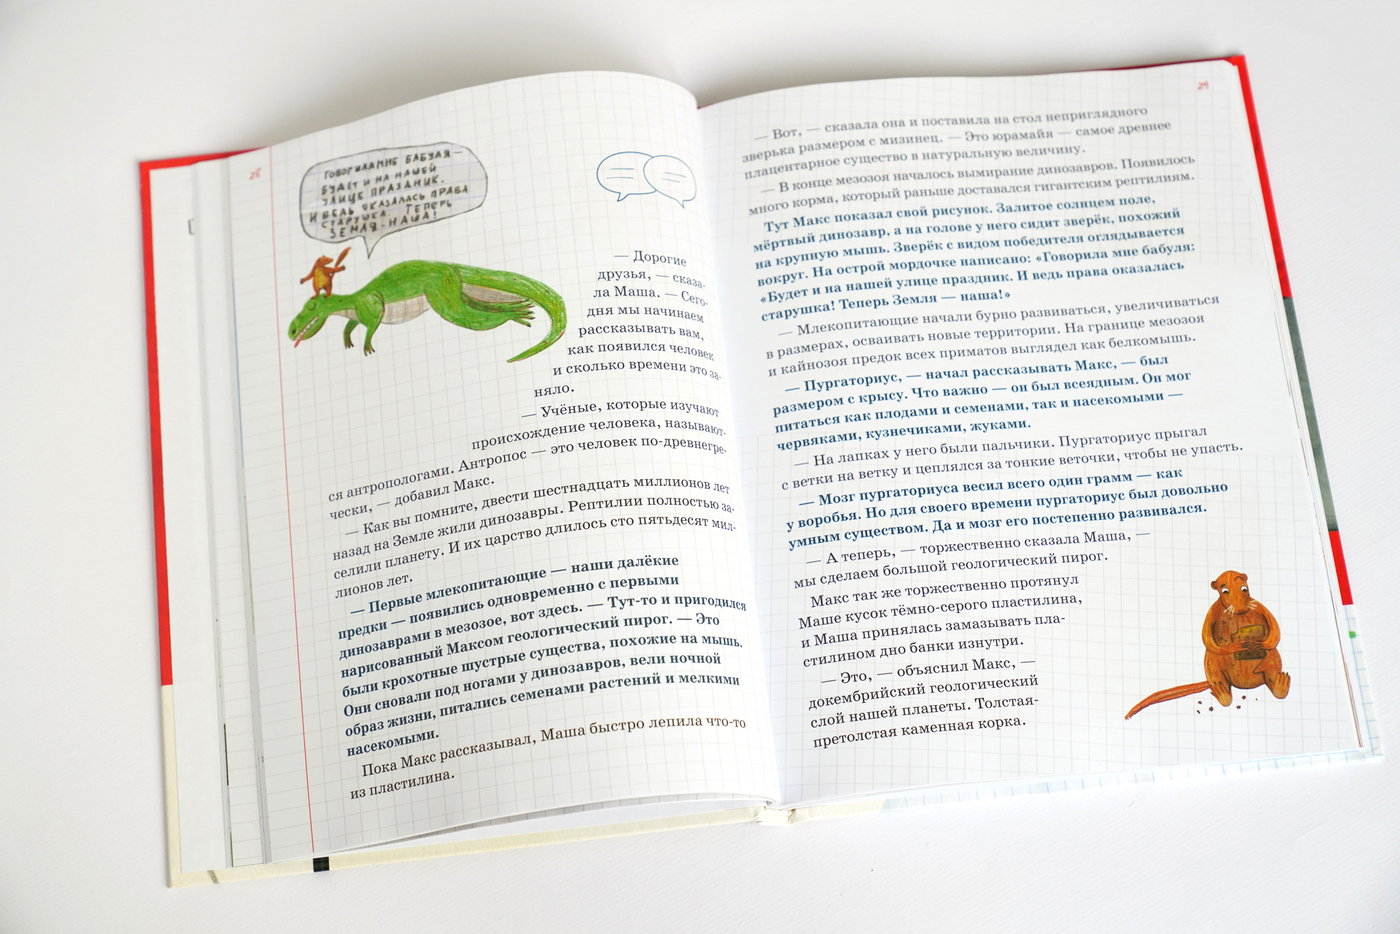 28
ГОВОРИЛА МНЕ БАБУЛЯ —
БУДЕТ И НА НАШЕЙ
УЛИЦЕ ПРАЗДНИК.
И ВЕДЬ ОКАЗАЛАСЬ ПРАВА
СТАРУШКА. ТЕПЕРЬ
ЗЕМЛЯ - НАША!
— Дорогие
друзья, — сказа-
ла Маша. — Сего-
дня мы начинаем
рассказывать вам,
как появился человек
и сколько времени это за-
няло.
— Учёные, которые изучают
происхождение человека, называют-
ся антропологами. Антропос — это человек по-древнегре-
чески, — добавил Макс.
— Как вы помните, двести шестнадцать миллионов лет
назад на Земле жили динозавры. Рептилии полностью за-
селили планету. И их царство длилось сто пятьдесят мил-
лионов лет.
— Первые млекопитающие — наши далёкие
предки — появились одновременно с первыми
динозаврами в мезозое, вот здесь. — Тут-то и пригодился
нарисованный Максом геологический пирог. — Это
были крохотные шустрые существа, похожие на мышь.
Они сновали под ногами у динозавров, вели ночной
образ жизни, питались семенами растений и мелкими
насекомыми.
Пока Макс рассказывал, Маша быстро лепила что-то
из пластилина.
29
— Вот, — сказала она и поставила на стол неприглядного
зверька размером с мизинец. — Это юрамайя — самое древнее
плацентарное существо в натуральную величину.
— В конце мезозоя началось вымирание динозавров. Появилось
много корма, который раньше доставался гигантским рептилиям.
Тут Макс показал свой рисунок. Залитое солнцем поле,
мёртвый динозавр, а на голове у него сидит зверёк, похожий
на крупную мышь. Зверёк с видом победителя оглядывается
вокруг. На острой мордочке написано: «Говорила мне бабуля:
«Будет и на нашей улице праздник. И ведь права оказалась
старушка! Теперь Земля — наша!»
— Млекопитающие начали бурно развиваться, увеличиваться
в размерах, осваивать новые территории. На границе мезозоя
и кайнозоя предок всех приматов выглядел как белкомышь.
— Пургаториус, — начал рассказывать Макс, — был
размером с крысу. Что важно — он был всеядным. Он мог
питаться как плодами и семенами, так и насекомыми —
червяками, кузнечиками, жуками.
— На лапках у него были пальчики. Пургаториус прыгал
с ветки на ветку и цеплялся за тонкие веточки, чтобы не упасть.
— Мозг пургаториуса весил всего один грамм — как
у воробья. Но для своего времени пургаториус был довольно
умным существом. Да и мозг его постепенно развивался.
— А теперь, — торжественно сказала Маша, —
мы сделаем большой геологический пирог.
Макс так же торжественно протянул
Маше кусок тёмно-серого пластилина,
и Маша принялась замазывать пла-
стилином дно банки изнутри.
— Это, — объяснил Макс, —
докембрийский геологический
слой нашей планеты. Толстая-
претолстая каменная корка.